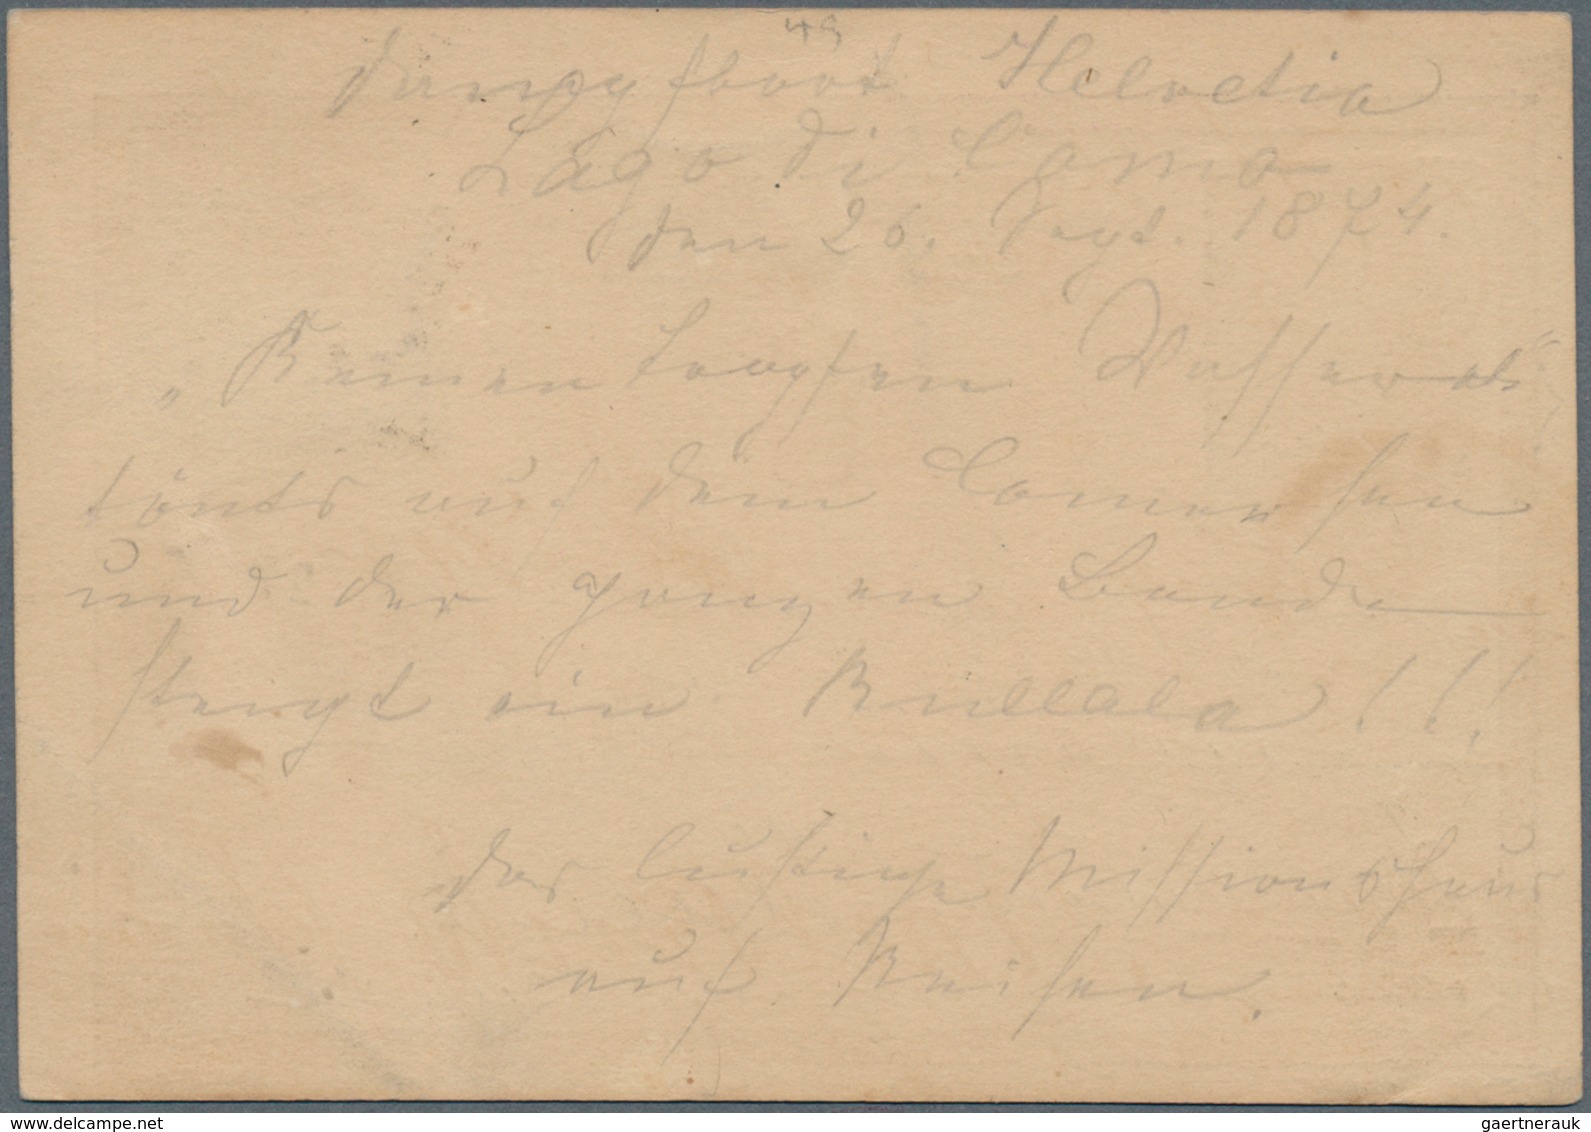 49
Dampfboot Helvetia
Lago di Como
den 26. Sept. 1874.
„Keinen Tropfen Wasser
tönts auf dem Comer See
und der ganzen Bande
steigt ein Rullala!!!
Das lustige Missionshaus
auf Reisen.
delcampe.net
gaertnerauk